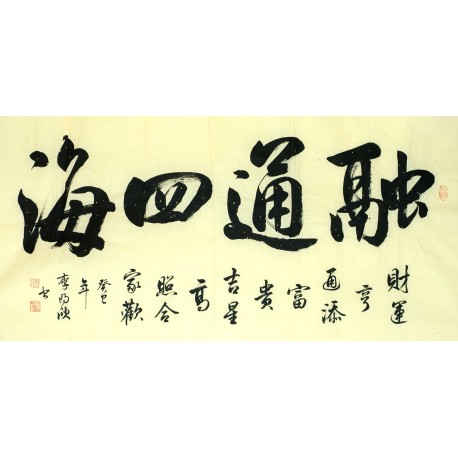 融通四海
財運
亨
通添
富
貴
吉星
高
照合
家歡
癸巳
年
李
书